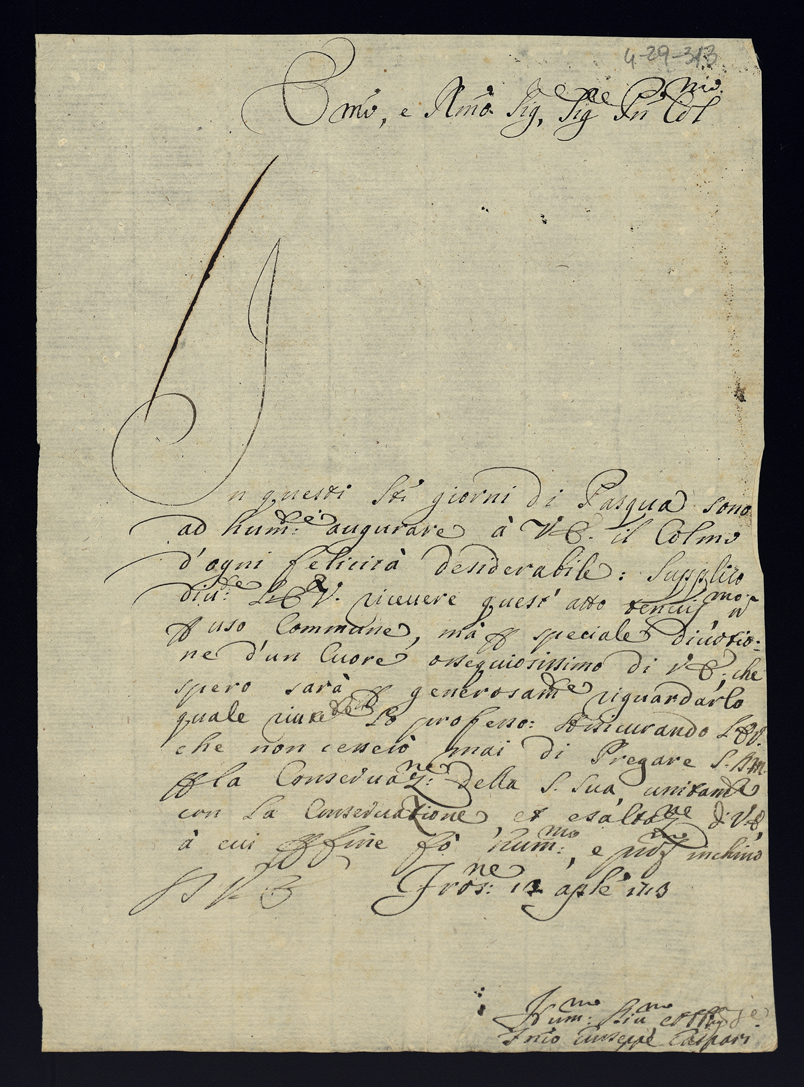 4-29-313
Emo, e Rmo Sig, Sig.re Pñ Col.mo
In questi Sti giorni di Pasqua sono
ad hum.te augurare à V.E. il Colmo
d'ogni felicità desiderabile: Supplico
L'E.V. riceuere quest' atto
uso Commune, mà speciale diuotio=
ne d'un Cuore ossequiosissimo di V.E., che
spero sarà generosam.te riguardarlo
quale Le professo: Assicurando L'E.V.
che non cesserò mai di Pregare S.
la Conseruaz.ne della S. Sua unitam.te
con La Conseruatione et esaltat.ne di V.E.
à cui fine fò hum.mo, e inchino
D V E Fros.ne 12 aple 1713
Hum.mo
Giuseppe Gaspari